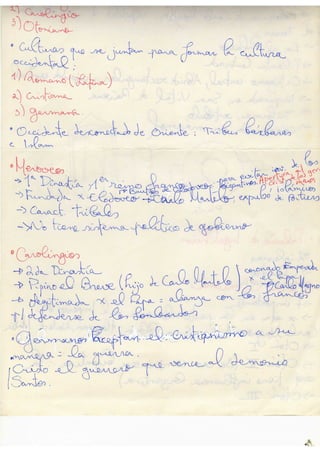 2) Carolingio
3) Otoniano
• Culturas que se juntan para formar la cultura
occidental:
1) Romano (Latina)
2) Cristiana
3) Germana
• Occidente desconectado de Oriente: Tribus barbaras
e Islam
• Meroveos
→ 1ª Dinastía 1er reino franco
→ Funda x Clodoveo → Carlo Martelo, expulso de Potiers
→ Caract. tribales
→ No tiene sistema político de gobierno
• Carolingios
→ 2da Dinastía
coronado Emperador
→ Pipino el Breve (hijo de Carlo Martelo) x el Papa
Carlo Magno
→ Legitimada x el Papa = alianza con los francos
p/ defenderse de los Lombardos
• Germanos aceptan el cristianismo a su
manera = la guerra.
Cristo el guerrero que vence al demonio
Santos.